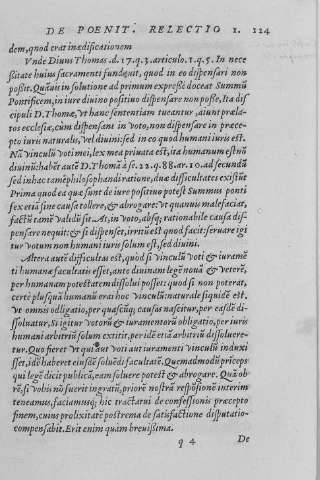 DE POENIT. RELECTIO 1. 124
dem, quod erat inædificationem
Vnde Diuus Thomas .d. 17. q. 3. articulo. 1. q. 5. In nece
ssitate huius sacramenti fundetur, quod in eo dispensari non
possit. Quāuis in solutione ad primum expresse doceat Summū
Pontificem, in iure diuino positiuo dispensare non posse, Ita dis
cipuli D. Thomæ, vt hanc sententiam tueantur, aiunt præla-
tos ecclesiæ, cum dispensant in voto, non dispensare in præce-
pto iuris naturalis, vel diuini: sed in eo quod humani iuris est.
Nā vinculū voti mei, lex mea priuata est, ita humanum est nō
diuinū: habet autē D. Thomā à se. 22. q. 88. ar. 10. ad secundū
sed in hac tamē philosophandi ratione, duæ difficultates existūt
Prima quod ea quæ sunt de iure positiuo potest Summus ponti
fex etiā sine causa tollere, & abrogare: vt quamuis malefaciat,
factū tamē validū sit. At, in voto, absq; rationabile causa dis-
pensare nequit: & si dispenset, irritū est quod facit: seruare igi
tur votum non humani iuris solum est, sed diuini.
Altera autē difficultas est, quod si vinculū voti & iuramē
ti humanæ facultatis esset, ante diuinam legē nouā & veterē,
per humanam potestatem dissolui posset: quod si non poterat,
certè plusquā humanū erat hoc vinculū: naturale siquidē est.
Vt omnis obligatio, per quascūq; causas nascitur, per easdē di-
ssoluatur. Si igitur votorū & iuramentorū obligatio, per iuris
humani arbitriū solum extitit, per idē etiā arbitriū dissoluere-
tur. Quo fieret vt qui aut voti aut iuramenti vinculū induxi
sset, idē haberet eiusdē soluēdi facultatē. Quemadmodū prīceps
qui legē dicit publicā, eam soluere potest & abrogare. Quā ob
rē, si vobis nō fuerit ingratū, priorē nostrā respōsionē interim
teneamus, faciamusq; hic tractatui de confessionis præcepto
finem, cuius prolixitatē postrema de satisfactione disputatio-
compensabit. Erit enim quam breuissima.
q 4 De